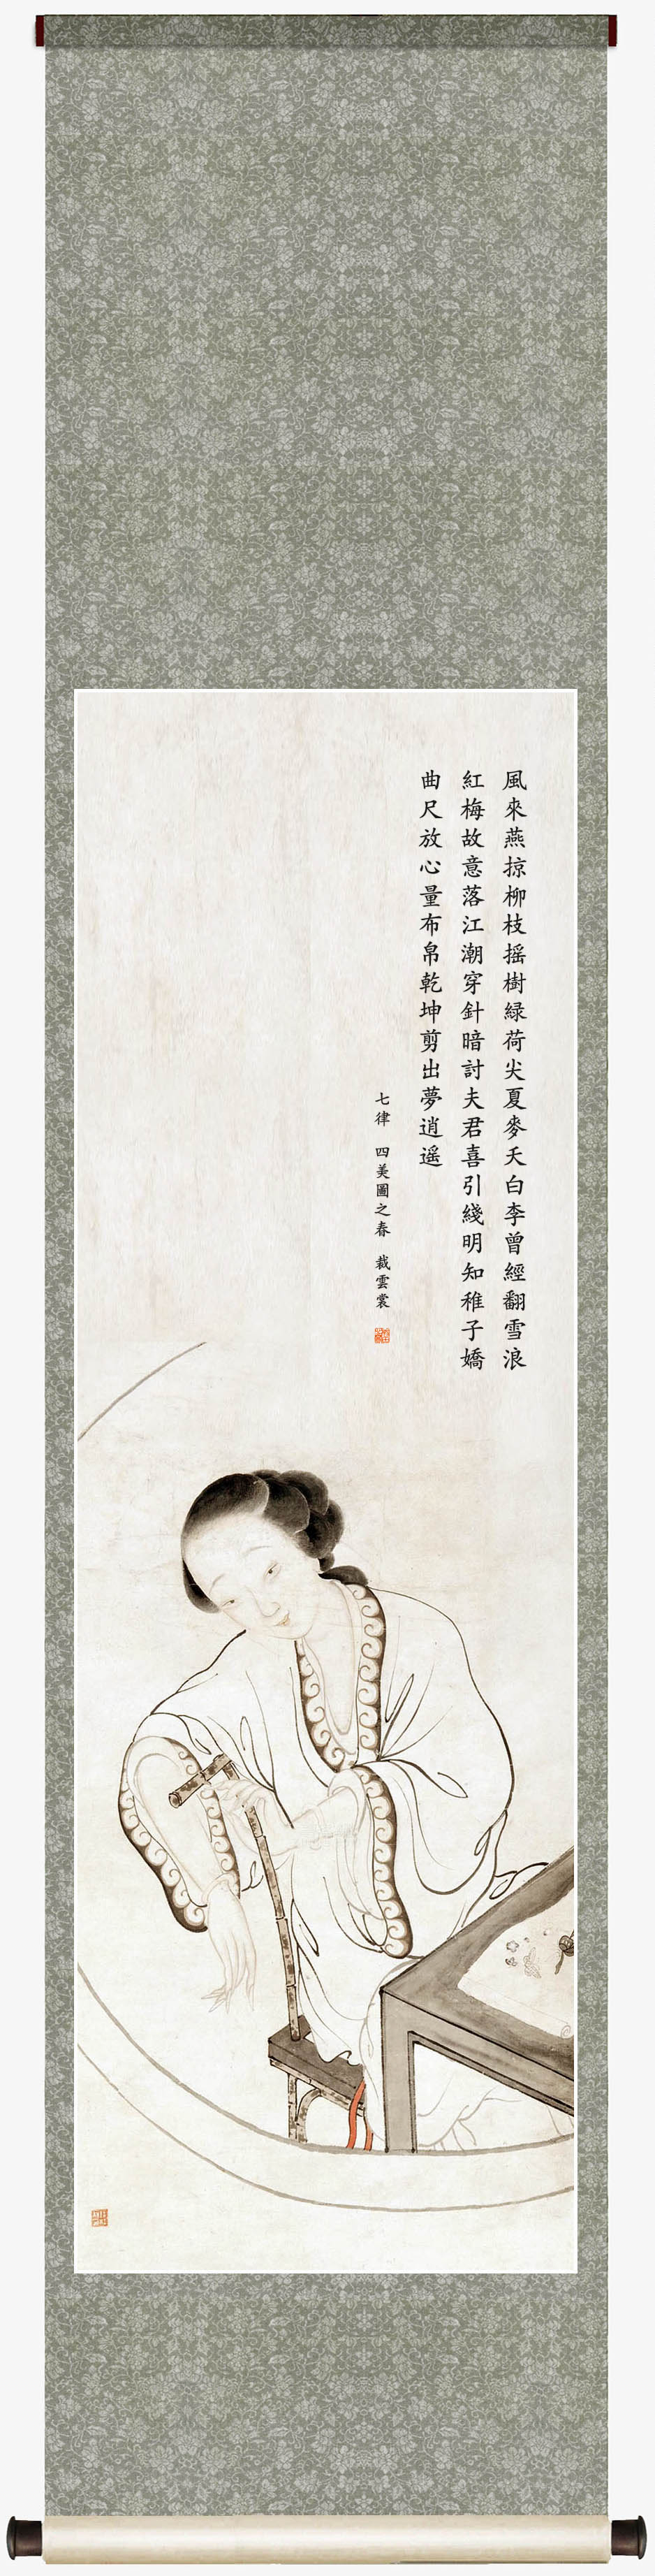 風來燕掠柳枝摇樹緑荷尖夏麥夭白李曾經翻雪浪
紅梅故意落江潮穿針暗討夫君喜引綫明知稚子嬌
曲尺放心量布帛乾坤剪出夢逍遥
七律 四美圖之春 裁雲裳